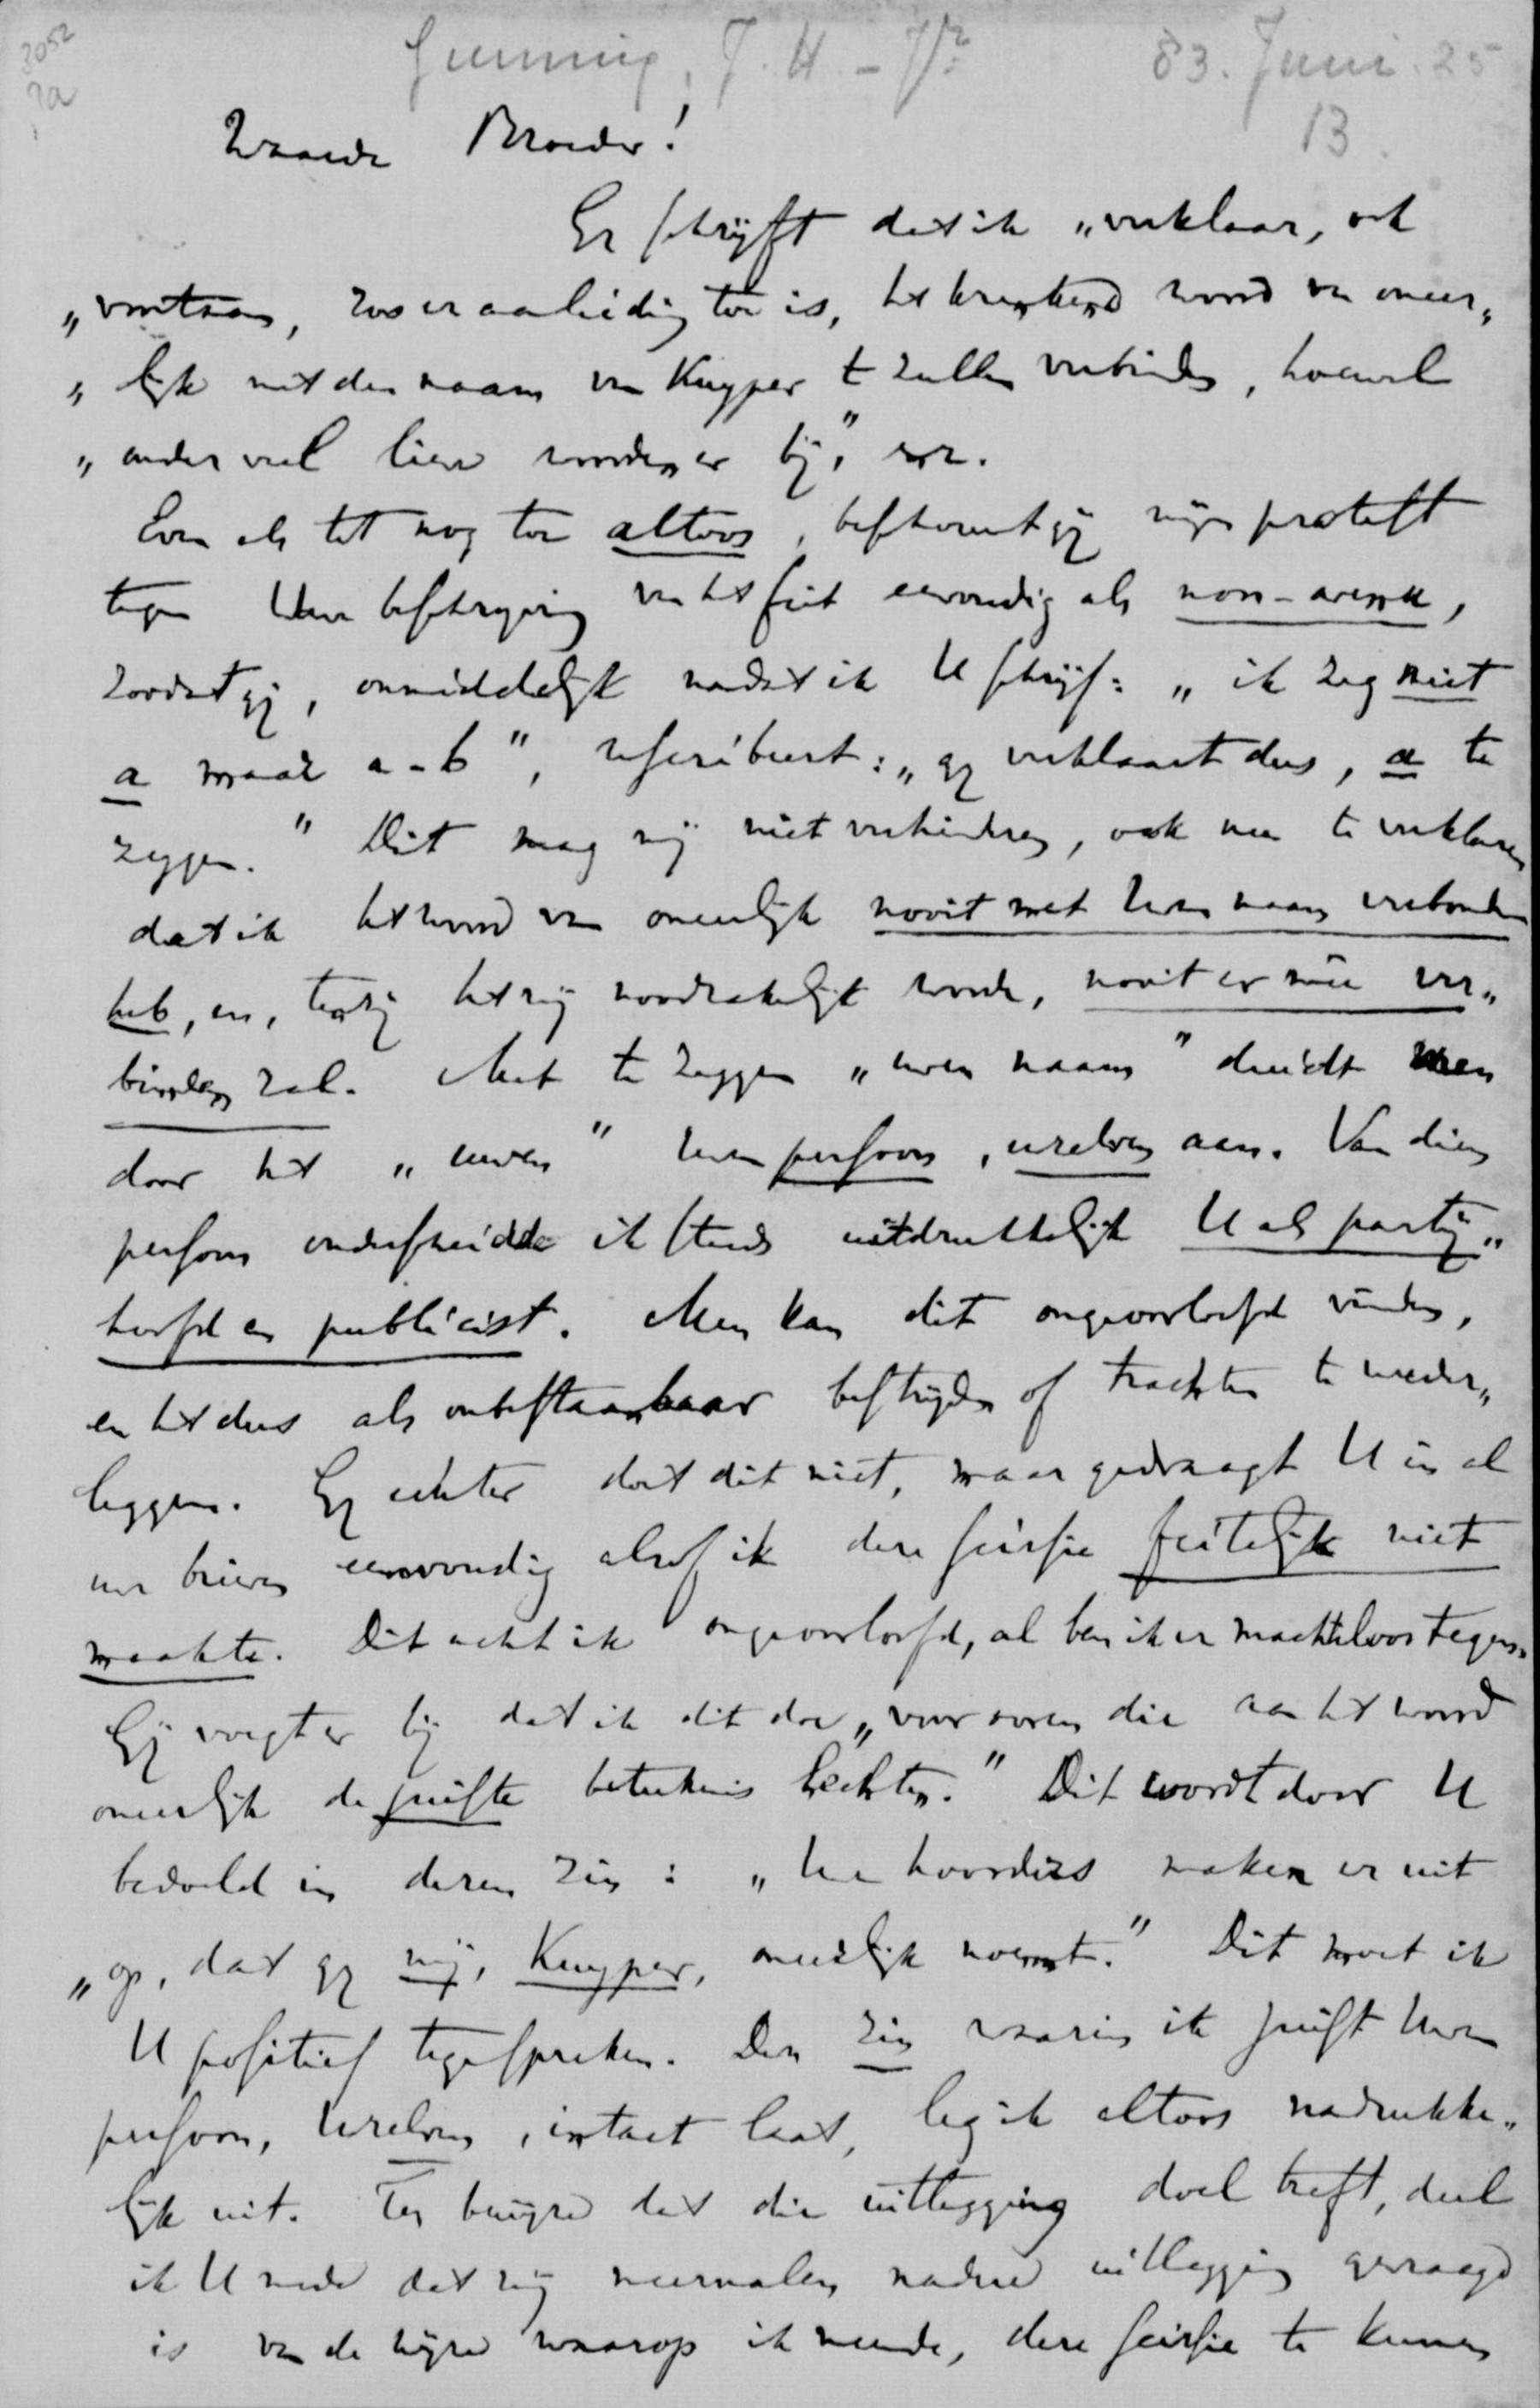 3052
2a
Gunning, J. H. - Jr. 83. Juni. 25
13.
Waarde Broeder!
Gij schrijft dat ik „verklaar, ook
„voortaan, zoo er aanleiding toe is, het krenkend woord van oneer„
„lijk met den naam van Kuyper te zullen verbinden, hoewel
„onder veel lieve woorden er bij," enz.
Even als tot nog toe altoos, beschouwt gij mijn protest
tegen Uwe beschrijving van het feit eenvoudig als non-avenu,
zoodat gij, onmiddelijk nadat ik U schrijf: „ik zeg niet
a maar a-b", rescribeert: „gij verklaart dus, a te
zeggen." Dit mag mij niet verhinderen, ook nu te verklaren
dat ik het woord van oneerlijk nooit met Uwen naam verbonden
heb, en, tenzij het mij noodzakelijk worde, nooit er mee ver„
binden zal. Met te zeggen „uwen naam" duidt men
door het „uwen" Uwen persoon, uzelven aan. Van dien
persoon onderscheidde ik steeds uitdrukkelijk U als partij„
hoofd en publicist. Men kan dit ongeoorloofd vinden,
en het dus als onbestaanbaar bestrijden of trachten te weder„
leggen. Gij echter doet dit niet, maar gedraagt U in al
uw brieven eenvoudig alsof ik deze scissie feitelijk niet
maakte. Dit acht ik ongeoorloofd, al ben ik er machteloos tegen.
Gij voegt er bij dat ik dit doe „voor ooren die aan het woord
oneerlijk de juiste beteekenis hechten." Dit wordt door U
bedoeld in dezen zin: „Uw hoorders maken er uit
„op, dat gij mij, Kuyper, oneerlijk noemt." Dit moet ik
U positief tegenspreken. Den zin waarin ik juist Uwen
persoon, Uzelven, intact laat, leg ik altoos nadrukke„
lijk uit. Ten bewijze dat die uitlegging doel treft, deel
ik U mede dat mij meermalen nadere uitlegging gevraagd
is van de wijze waarop ik meende, deze scissie te kunnen